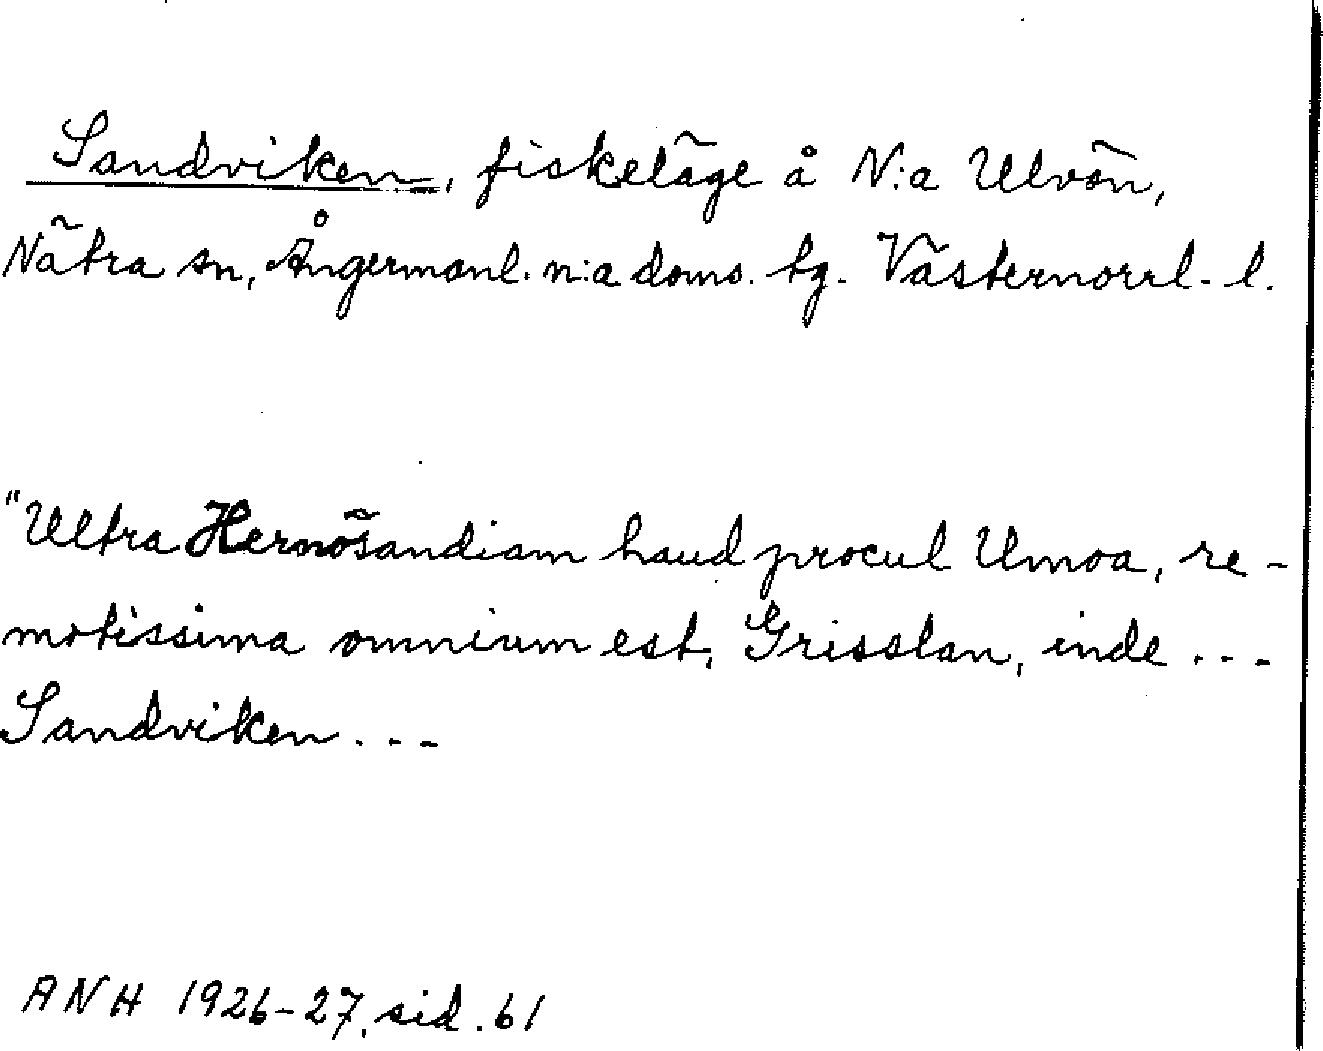 Sandviken, fiskeläge å N:a Ulvön,
Nätra sn, Ångermanl. n:a doms. tg. Västernorrl. l.
"Ultra Hernösandiam haud procul Umoa, re-
motissima omnium est, Grisslan, inde ...
Sandviken ...
ANH 1926-27, sid. 61